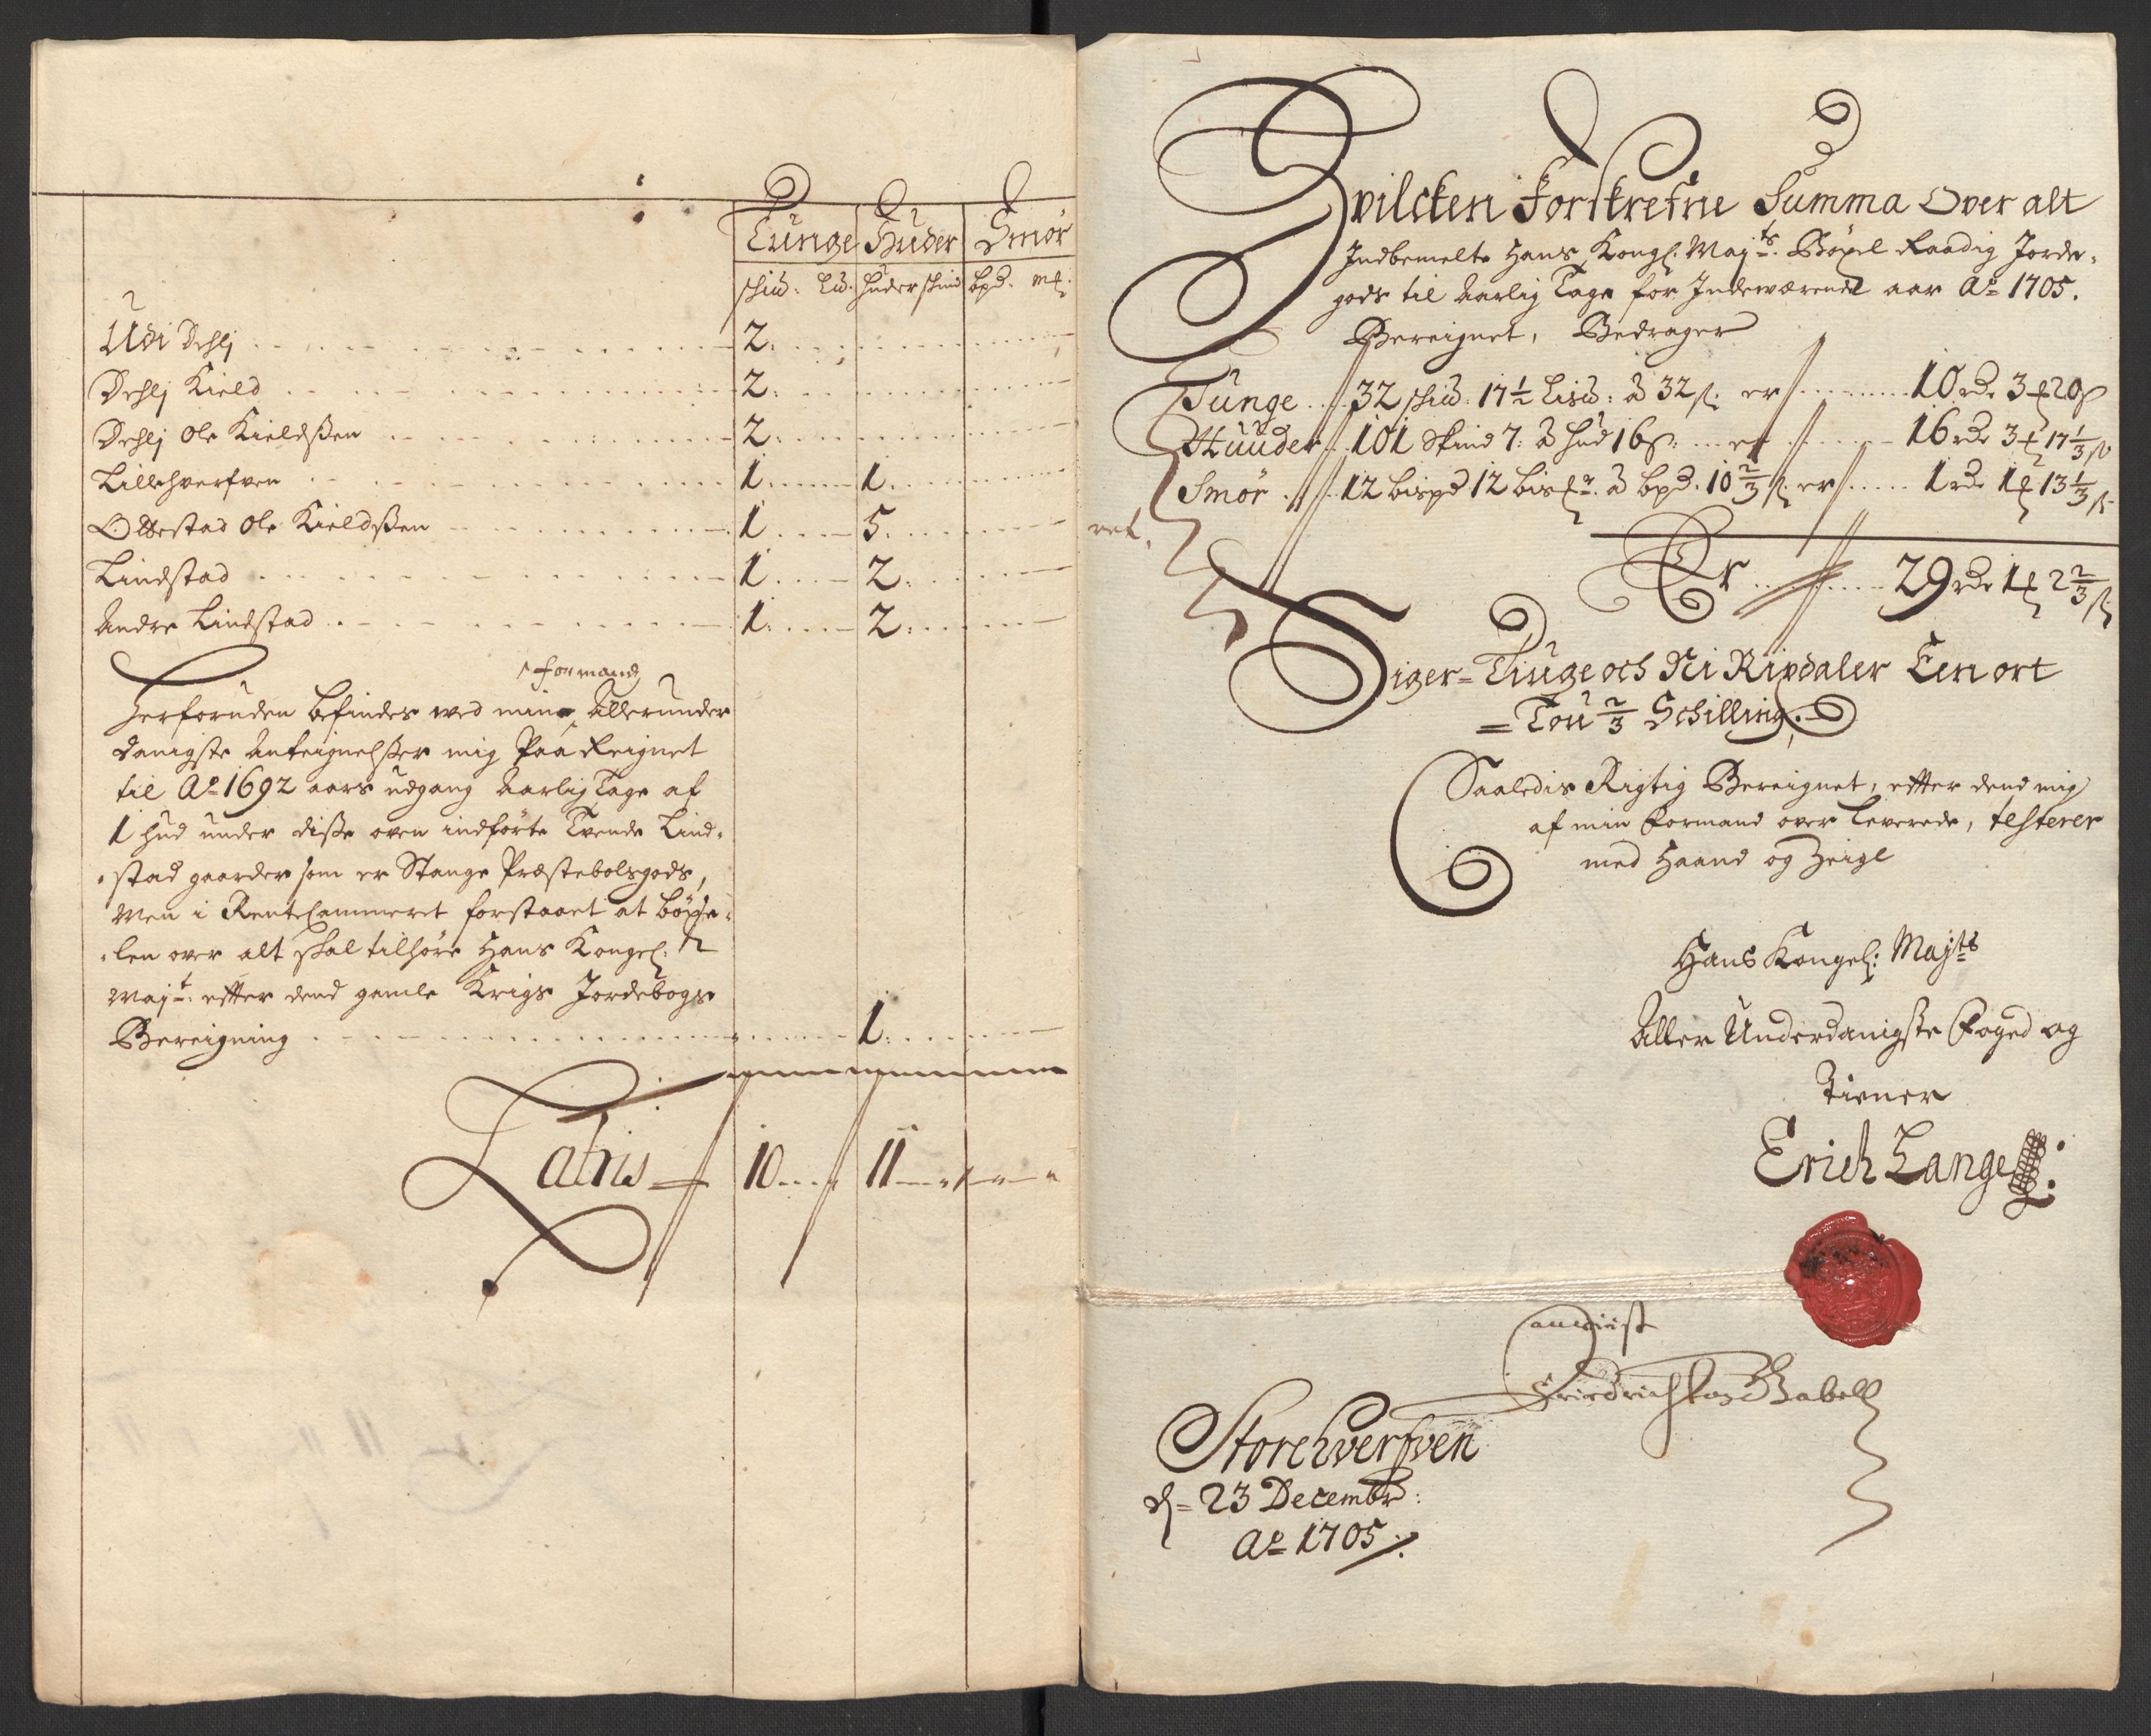 Tunge Huder Smör
schìd: Ld. Huder skind bpd. mk:
Udi Dehlj 2.
Dehlj Kield 2.
Dehlj Ole Kieldßen 2.
Lillehverfven 1. 1.
Ottestad Ole Kieldßen 1 5.
Lindstad 1. 2.
Andre Lindstad 1. 2.
formand
Herforuden befindes ved min Allerunder
danigste Anteignelßer mig Paa Reignet
til Ao 1692 aars udgang Aarlig Tage af
1 Hud under diße oven indförte Tvende Lind-
stad gaarder som er Stange Præstebolsgods,
Men i Rentecammeret forstaaet at böxe-
len over alt skal tilhöre Hans Kongel:
Mayt: efter dend gamle Krigs Jordebogs
Bereigning 1.
Latris 10 11
Hvilcken Forskrefne Summa Over alt
Indbemelte Hans Kongl: Mayts. Böxel Raadig Jorde-
gods til Aarlig Tage for Indeværende aar Ao 1705.
Bereignet, Bedrager
Tunge 32 schìd: 17½ Lisd: à 32 ß: er 10 rdr 3 ₰ 20 ß
Huuder 101 Skind 7: à Hud 16 ß: er 16 rdr 3 ₰ 17⅓ ß
Smör 12 bispd 12 à bpd. 10⅔ ß er 1 rdr 1 ₰ 13⅓ ß
Er 29 rdr 1 ₰ 2⅔ ß
Siger = Tiuge och Ni Rixdaler Een ort
= Tou ⅔ Schilling.
Saaledis Rigtig Bereignet, efter dend mig
af min Formand over Leverede, testerer
med Haand og Zeigl
Hans Kongel: Mayts
Aller Underdanigste Foged og
Tiener
Erich Lange
Friedrich Gabell
Storehverfven
d = 23 Decembr:
Ao 1705